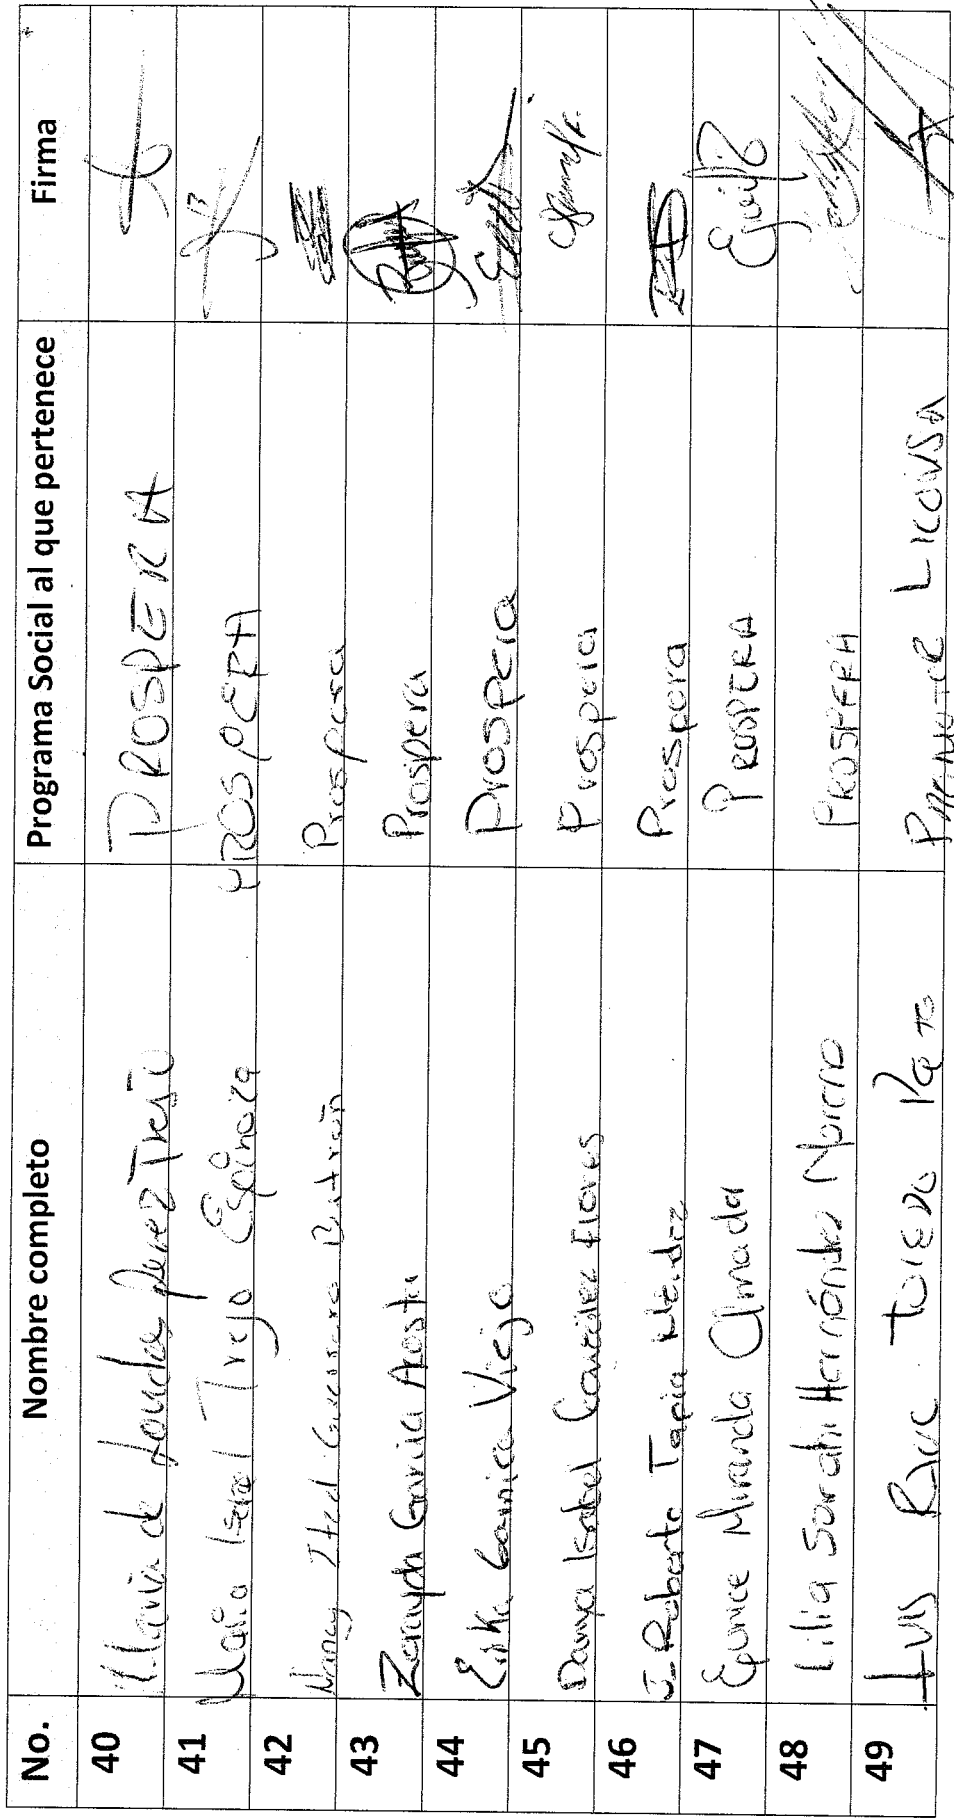 No. Nombre completo Programa Social al que pertenece Firma
40 Maria de Lourdes perez Trejo PROSPERA
41 Maria Isabel Trejo Espinoza PROSPERA
42 Nancy Itzel Guerrero Buitrón Prospera
43 Zorayda Garcia Acosta Prospera
44 Erika Garnica Viejo Prospera
45 Danya Isabel González Flores Prospera
46 J. Roberto Tapia Prospera
47 Eunice Miranda Almada PROSPERA
48 Lilia Sarahi Hernández Moreno PROSPERA
49 LUIS RAUL TOLEDO LICONSA